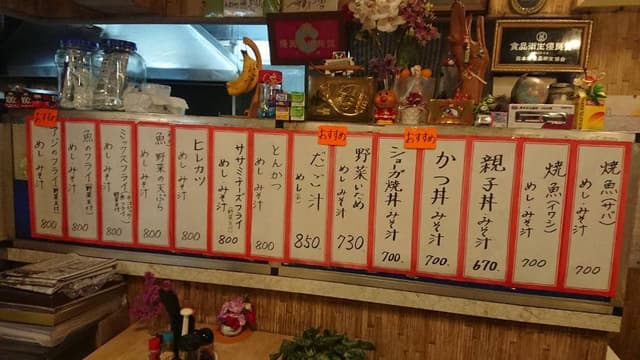 食品衛生優良
焼魚(サバ)
めし・みそ汁
700
焼魚(イワシ)
めし・みそ汁
700
親子丼 みそ汁
670
かつ丼 みそ汁
700
おすすめ
ショーガ焼丼 みそ汁
700
野菜いため
めし みそ汁
730
おすすめ
だご汁
めし
850
とんかつ
めし みそ汁
800
ササミチーズフライ
めし みそ汁
800
ヒレカツ
めし みそ汁
800
魚 野菜の天ぷら
めし みそ汁
800
ミックスフライ
めし みそ汁
800
魚のフライ(野菜天付)
めし みそ汁
800
おすすめ
アジのフライ(野菜天付)
めし みそ汁
800